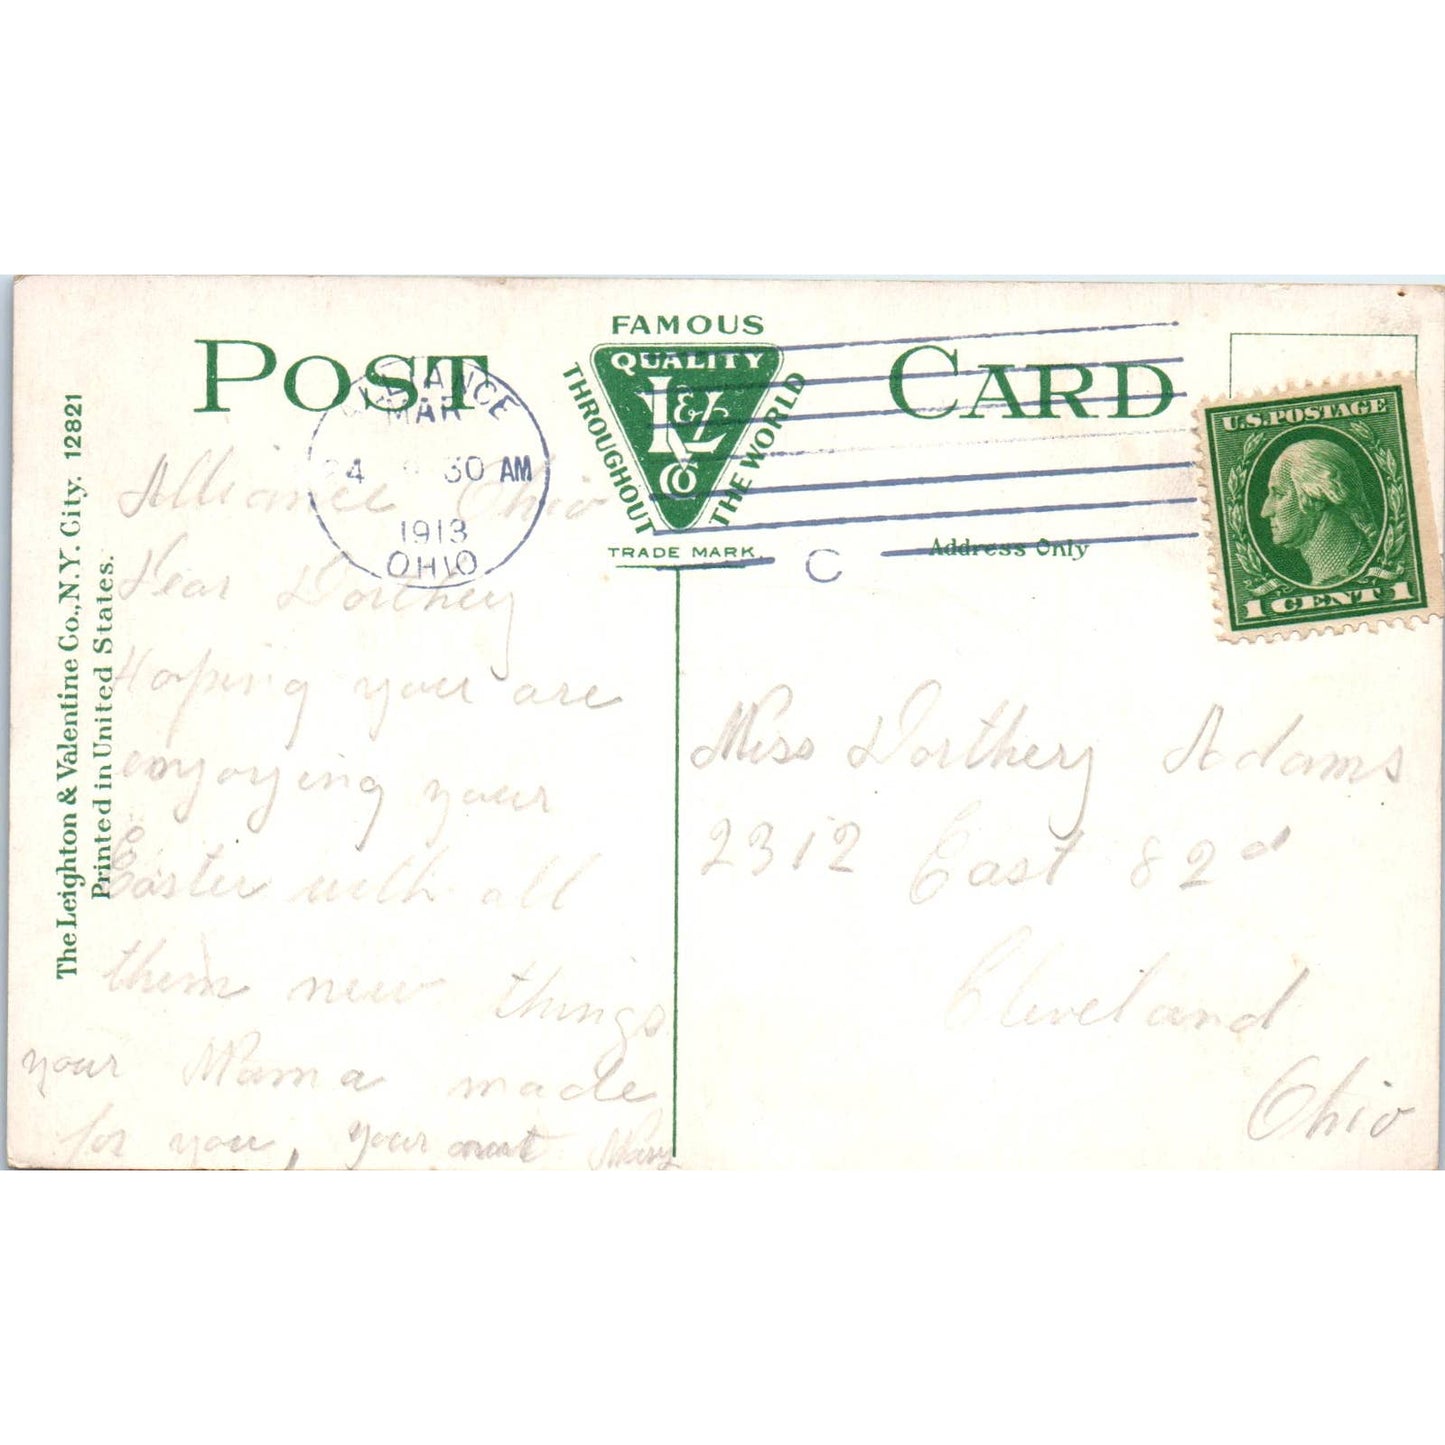 The Leighton & Valentine Co., N.Y. City. 12821
Printed in United States.
POST CARD
FAMOUS
QUALITY
THROUGHOUT
THE WORLD
L & V
Co
TRADE MARK.
ALLIANCE
MAR
24 30 AM
1913
OHIO
C
Address Only
U.S. POSTAGE
1 CENT 1
Alliance Ohio
Dear Dorthey
Hoping your are
enjoying your
Easter with all
them new things
your Mama made
for you, your aunt Mary
Miss Dorthery Adams
2312 East 82d
Cleveland
Ohio